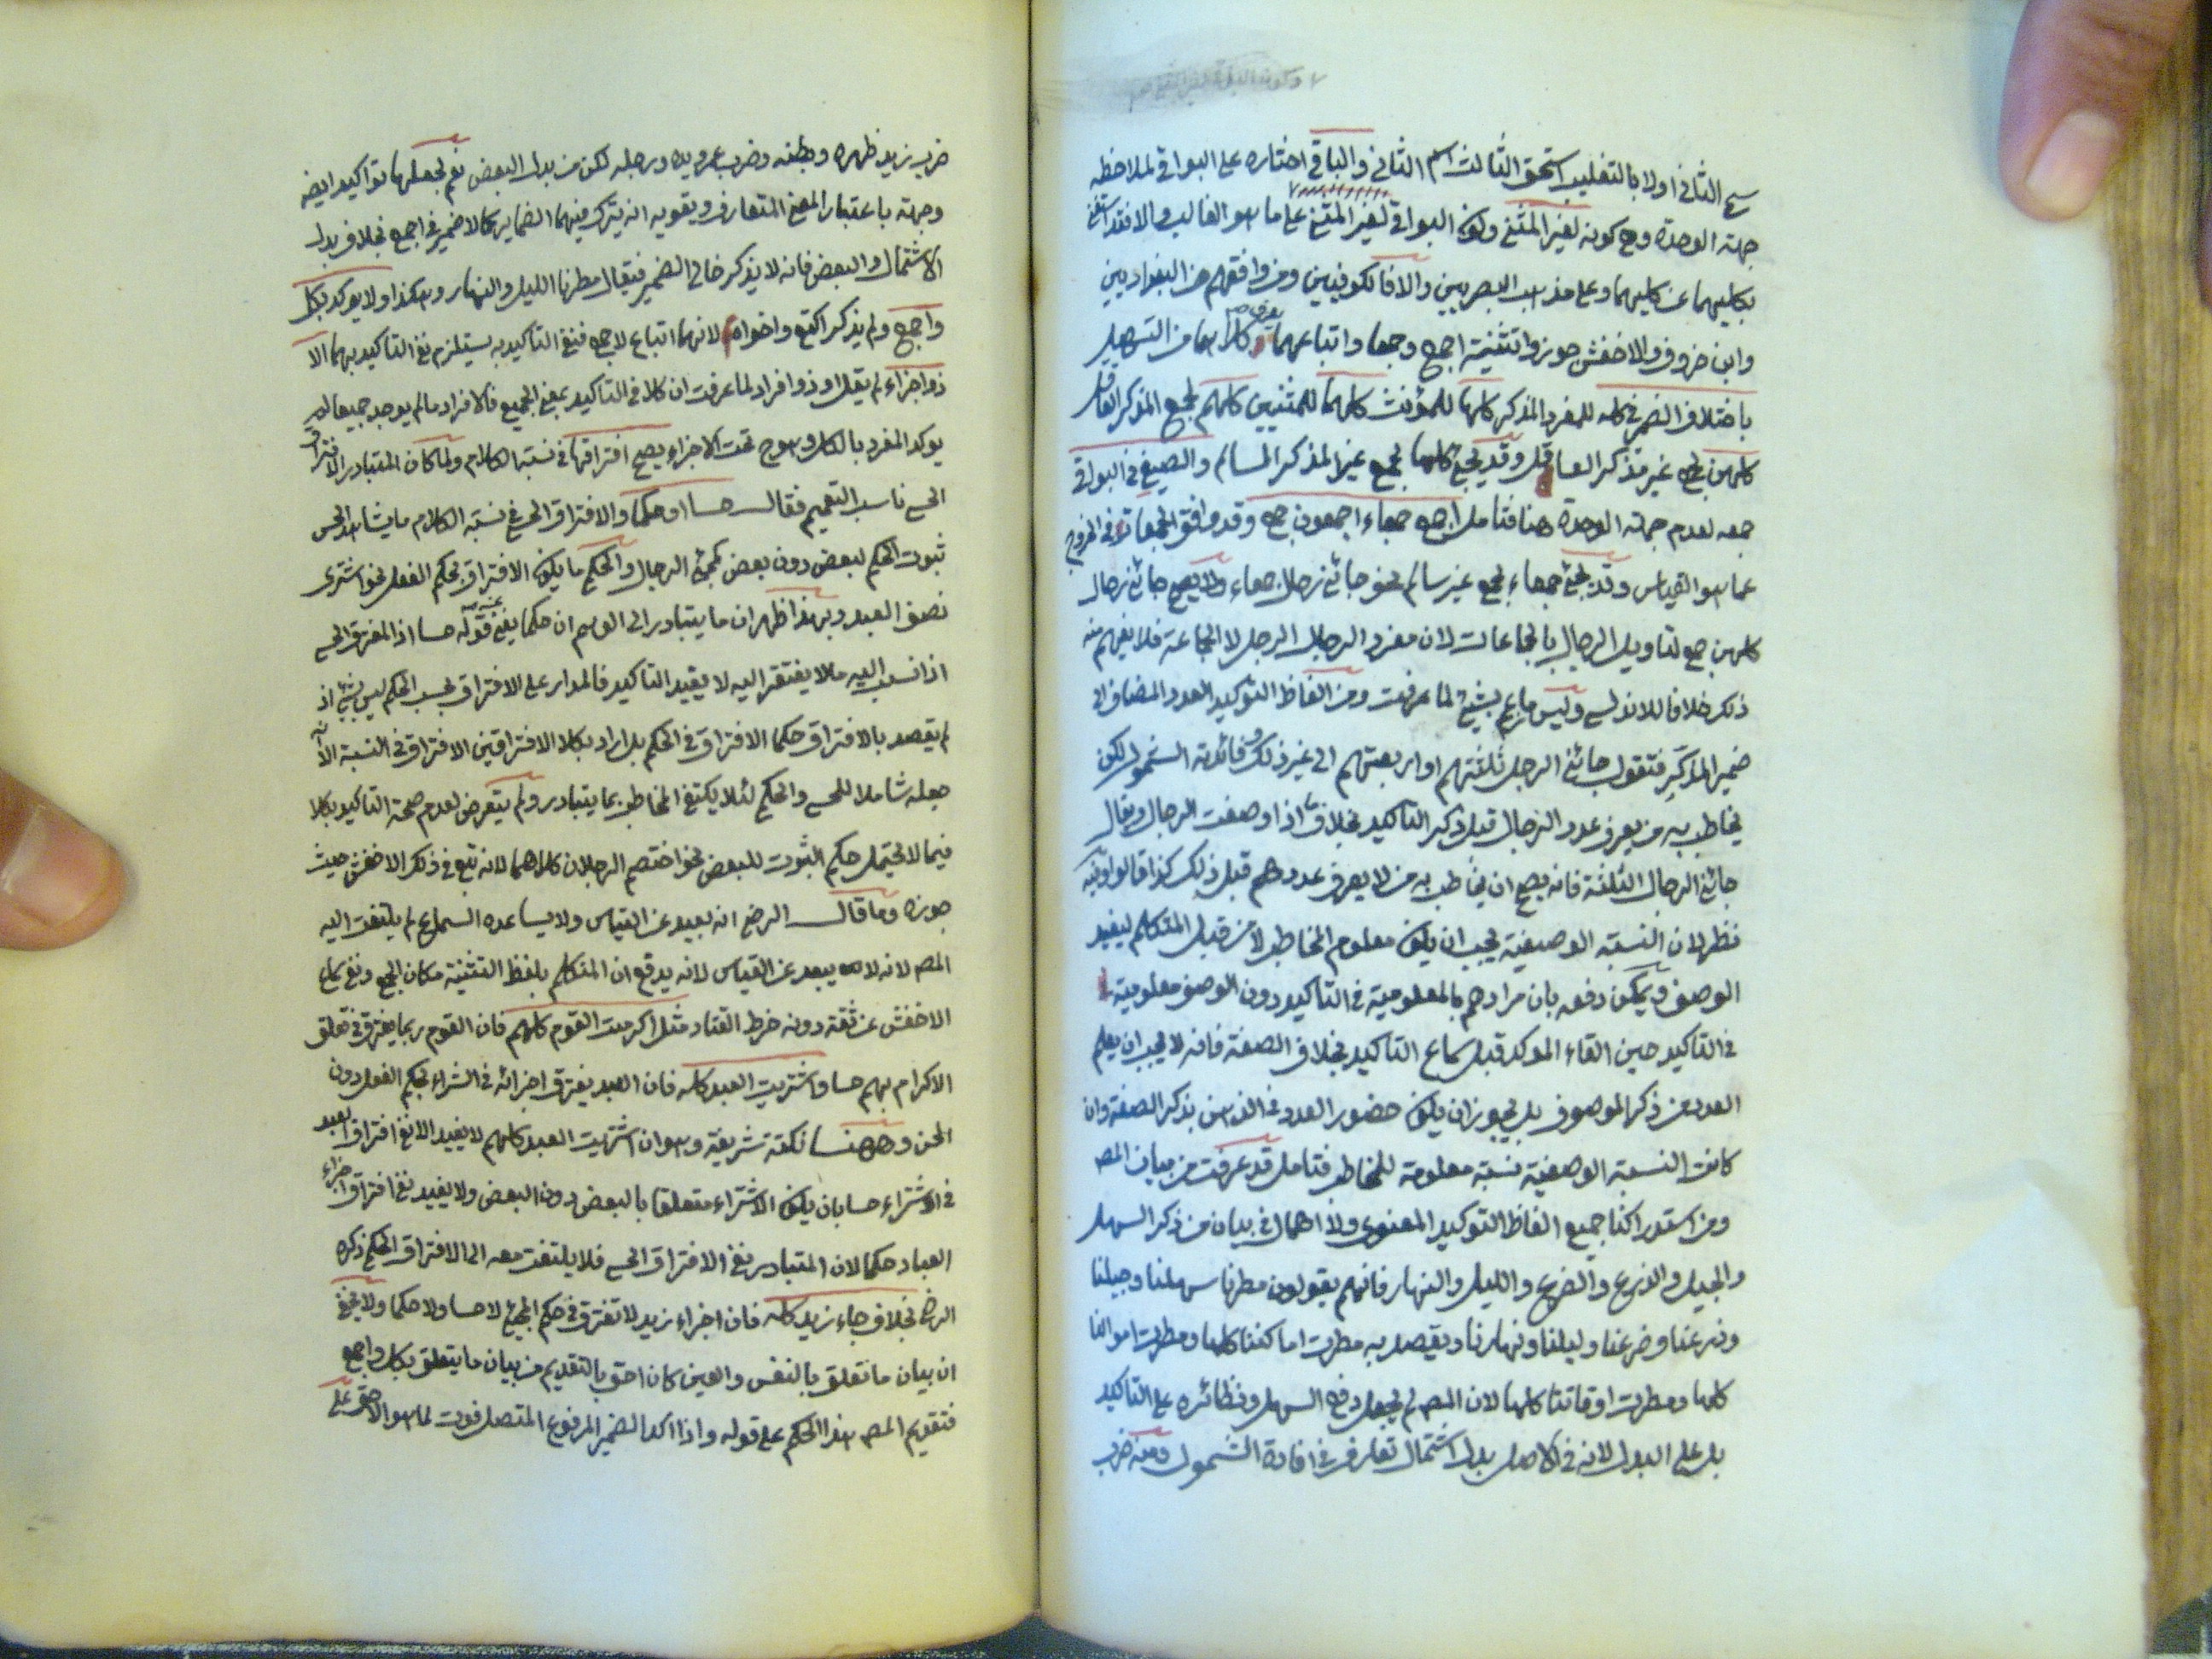 سمي الثاني اولا بالتغليب استحق الثالث اسم الثاني والباقي اختاره على البواقي لملاحظة
جهة الوحدة وهي كونه لغير المثنى وكون البواقي لغير المثنى على ما هو الغالب والا فقد استغني
بكليهما عن كليهما وعلى مذهب البصريين والا فالكوفيين ومن وافقهم من البغداديين
وابن خروف والاخفش جوزوا تثنية اجمع وجمعا واتباعهما كلاهما من التسهيل
باختلاف الضمير في كله للمفرد المذكر كلها للمؤنث كلهما للمثنيين كلهم لجمع المذكر العاقل
كلهن لجمع غير مذكر العاقل وقد يجئ كلها لجمع غير المذكر السالم والصيغ في البواقي
جمعه لعدم جهة الوحدة هنا فتامل اجمع جمعاء اجمعون جمع وقد وافق الجمعا في الخروج
عما هو القياس وقد يجئ جمعاء لجمع غير سالم نحو جائني رجال جمعاء ولا يصح جائني رجال
كلهن جمع لتاويل الرجال بالجماعات لان مفرد الرجال الرجل لا الجماعة فلا يفهم منه
ذلك خلافا للاندلسي وليس ما زعم بشئ لما عرفت ومن الفاظ التوكيد العدد المضاف الى
ضمير المذكر فتقول جائني الرجل ثلثتهم او اربعتهم الى غير ذلك وفائدته الشمول لكن
يخاطب به من يعرف عدد الرجال قبل ذكر التاكيد بخلاف اذا وصفت الرجال وتقال
جائني الرجال الثلثة فانه يصح ان يخاطب به من لا يعرف عددهم قبل ذلك كذا قالوا وفيه
نظر لان النسبة الوصفية يجب ان يكون معلوم المخاطب لا من قبل المتكلم ليفيد
الوصف ويمكن دفعه بان مرادهم بالمعلومية في التاكيد دون الوصف معلومية
في التاكيد حين القاء الموكد قبل سماع التاكيد بخلاف الصفة فانه لا يجب ان يعلم
العدد عن ذكر الموصوف بل يجوز ان يكون حضور العدد في الذهن بذكر الصفة وان
كانت النسبة الوصفية نسبة معلومة للمخاطب فتامل قد عرفت من بيان المص
ومن استدراكنا جميع الفاظ التوكيد المعنوي ولا اهمال في بيان من ذكر السهل
والجبل والزرع والضرع والليل والنهار فانهم يقولون مطرنا سهلنا وجبلنا
وزرعنا وضرعنا وليلنا ونهارنا ويقصد به مطرت اماكننا كلها ومطرت اموالنا
كلها ومطرت اوقاتنا كلها لان المص لم يجعل رفع السهل ونظائره على التاكيد
بل على البدل لانه في الاصل بدل اشتمال تعارف في افادة الشمول ومنه ضرب
ضرب زيد ظهره وبطنه وضرب عمرو يده ورجله لكن من بدل البعض نعم لجعلها تواكيد ايضا
وجهة باعتبار المعنى المتعارف ويقويه انه يترك فيهما الضماير كما لا ضمير في اجمع بخلاف بدل
الاشتمال والبعض فانه لا يذكر خالي الضمير فيقال مطرنا الليل والنهار وهكذا ولا يوكد بكل
واجمع ولم يذكر اكتع واخواه لانهما اتباع لاجمع فنفي التاكيد به يستلزم نفي التاكيد بهما الا
ذو اجزاء لم يقل او ذو افراد لما عرفت ان كلا في التاكيد بمعنى الجميع فالافراد ما لم يوجد جميعا لم
يوكد المفرد بالكل وهو ح تحت الاجزاء يصح افتراقها في نسبة الكلام ولما كان المتبادر الافتراق
الحسي ناسب التعميم فقال حسا او حكما والافتراق الحسي في نسبة الكلام ما يشاهد الحس
ثبوت الحكم لبعض دون بعض كمجئ الرجال والحكم ما يكون الافتراق بحكم الفعل نحو اشترى
نصف العبد وبهذا ظهر ان ما يتبادر الى الوهم ان حكما يغني عن قوله حسا اذا المفترق الحسي
اذا نسب اليه ما لا يفتقر اليه لا يفيد التاكيد فالمدار على الافتراق بحسب الحكم ليس بشئ اذ
لم يقصد بالافتراق حكما الافتراق في الحكم بل اراد بكلا الافتراقين الافتراق في النسبة الا انه
جعله شاملا للحسي والحكم لئلا يكتفي المخاطب بما يتبادر ولم يتعرض لعدم صحة التاكيد بكلا
فيما لا يحتمل حكم الثبوت للبعض نحو اختصم الرجلان كلاهما لانه تبع في ذلك الاخفش حيث
جوزه وما قال الرضي انه بعيد عن القياس ولا يساعده السماع لم يلتفت اليه
المص لانه لا يبعد عن القياس لانه يدفع ان المتكلم بلفظ التثنية مكان الجمع ونفي سماع
الاخفش عن ثقة دونه خرط القتاد مثل اكرمت القوم كلهم فان القوم ربما يفترق في تعلق
الاكرام بهم حسا واشتريت العبد كله فان العبد يفترق اجزائه في الشراء بحكم الفعل دون
الحس وههنا نكتة شريفة وهو ان اشتريت العبد كلهم لا يفيد الا نفي افتراق العبد
في الاشتراء حسا بان يكون الاشتراء متعلقا بالبعض دون البعض ولا يفيد نفي افتراق اجزاء
العباد حكما لان المتبادر نفي الافتراق الحسي فلا يلتفت معه الى الافتراق الحكم ذكره
الرضي بخلاف جاء زيد كله فان اجزاء زيد لا تفترق في حكم المجئ لا حسا ولا حكما ولا يخفى
ان بيان ما تعلق بالنفس والعين كان احق بالتقديم من بيان ما يتعلق بكل واجمع
فتقديم المص هذا الحكم على قوله واذا اكد الضمير المرفوع المتصل فوت لما هو الاحق على